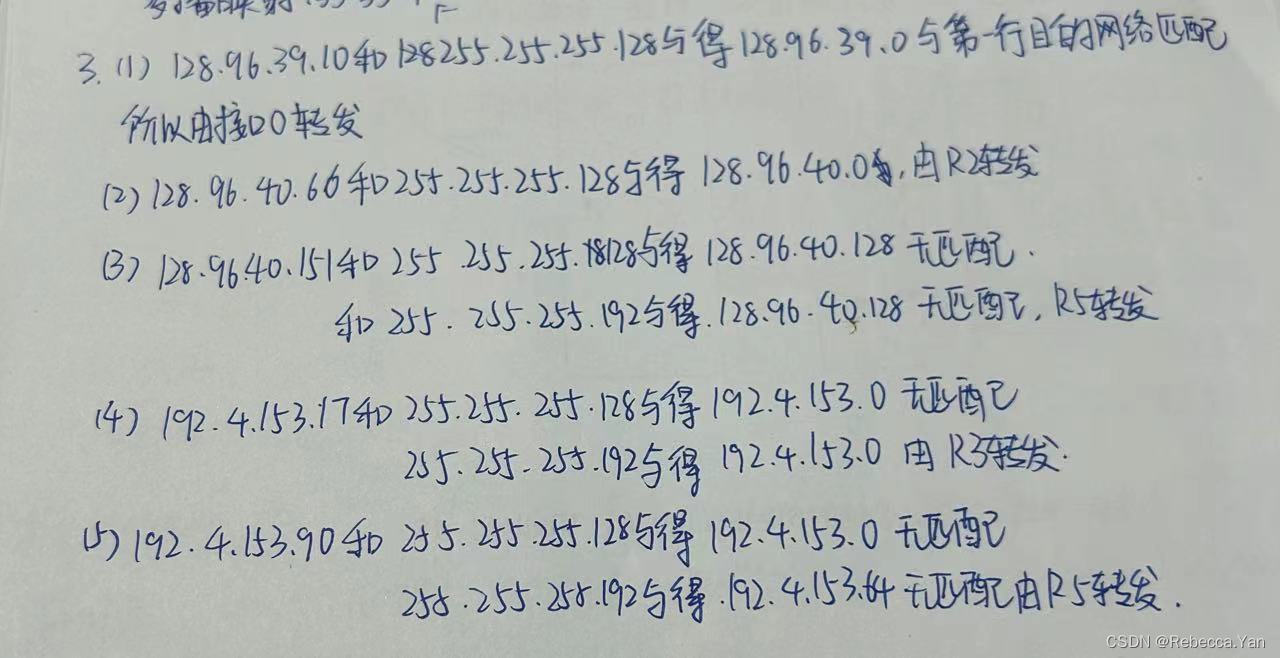 3. (1) 128.96.39.10和128255.255.255.128与得128.96.39.0与第一行目的网络匹配
所以由接口0转发
(2) 128.96.40.66和255.255.255.128与得 128.96.40.0,由R2转发
(3) 128.96.40.151和 255.255.255.128与得 128.96.40.128 无匹配.
和 255.255.255.192与得.128.96.40.128 无匹配,R5转发
(4) 192.4.153.17和 255.255.255.128与得 192.4.153.0 无匹配
255.255.255.192与得 192.4.153.0 由R3转发.
(5) 192.4.153.90和 255.255.255.128与得 192.4.153.0 无匹配
255.255.255.192与得.192.4.153.64 无匹配由R5转发.
CSDN @Rebecca.Yan